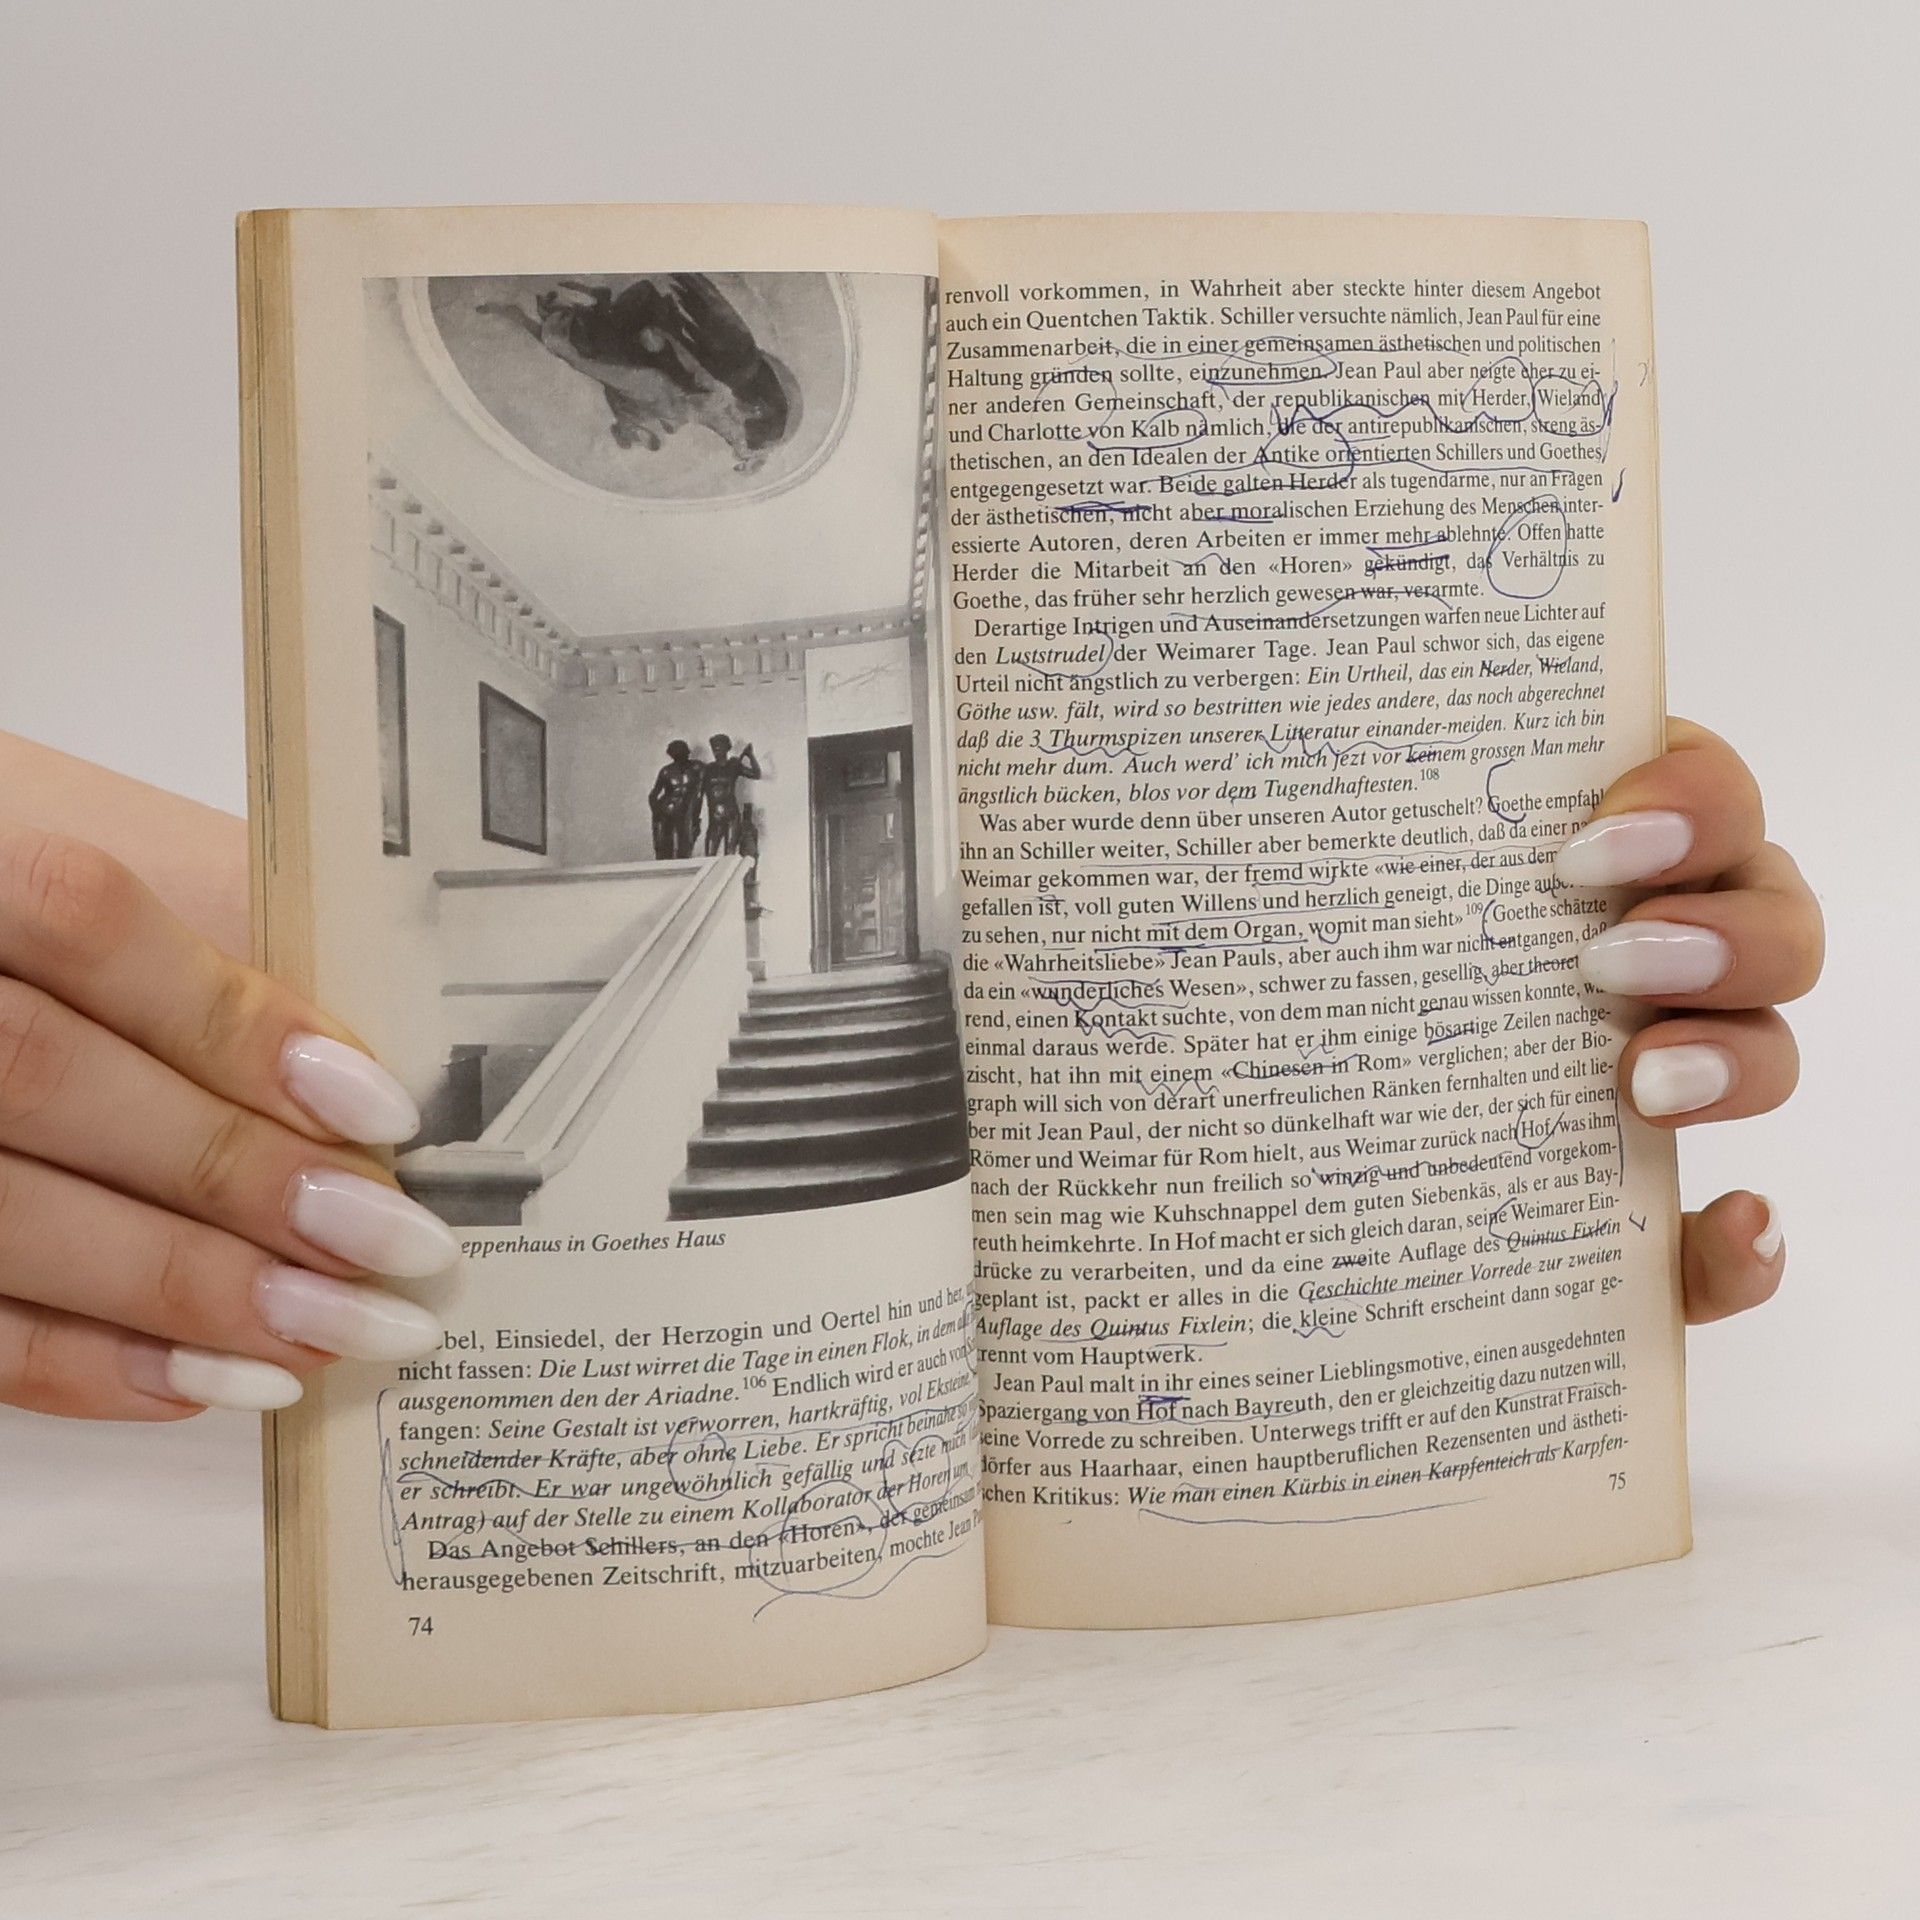 eppenhaus in Goethes Haus
bel, Einsiedel, der Herzogin und Oertel hin und her,
nicht fassen: Die Lust wirret die Tage in einen Flok, in dem
ausgenommen den der Ariadne.106 Endlich wird er auch von
fangen: Seine Gestalt ist verworren, hartkräftig, vol Eksteine,
schneidender Kräfte, aber ohne Liebe. Er spricht beinahe so
er schreibt. Er war ungewöhnlich gefällig und sezte mich
Antrag) auf der Stelle zu einem Kollaborator der Horen um,
Das Angebot Schillers, an den «Horen», der gemeinsam
herausgegebenen Zeitschrift, mitzuarbeiten, mochte Jean
74
renvoll vorkommen, in Wahrheit aber steckte hinter diesem Angebot
auch ein Quentchen Taktik. Schiller versuchte nämlich, Jean Paul für eine
Zusammenarbeit, die in einer gemeinsamen ästhetischen und politischen
Haltung gründen sollte, einzunehmen. Jean Paul aber neigte eher zu ei-
ner anderen Gemeinschaft, der republikanischen mit Herder, Wieland
und Charlotte von Kalb nämlich, die der antirepublikanischen, streng äs-
thetischen, an den Idealen der Antike orientierten Schillers und Goethes,
entgegengesetzt war. Beide galten Herder als tugendarme, nur an Fragen
der ästhetischen, nicht aber moralischen Erziehung des Menschen inter-
essierte Autoren, deren Arbeiten er immer mehr ablehnte. Offen hatte
Herder die Mitarbeit an den «Horen» gekündigt, das Verhältnis zu
Goethe, das früher sehr herzlich gewesen war, verarmte.
Derartige Intrigen und Auseinandersetzungen warfen neue Lichter auf
den Luststrudel der Weimarer Tage. Jean Paul schwor sich, das eigene
Urteil nicht ängstlich zu verbergen: Ein Urtheil, das ein Herder, Wieland,
Göthe usw. fält, wird so bestritten wie jedes andere, das noch abgerechnet
daß die 3 Thurmspizen unserer Litteratur einander-meiden. Kurz ich bin
nicht mehr dum. Auch werd' ich mich jezt vor keinem grossen Man mehr
ängstlich bücken, blos vor dem Tugendhaftesten.108
Was aber wurde denn über unseren Autor getuschelt? Goethe empfahl
ihn an Schiller weiter, Schiller aber bemerkte deutlich, daß da einer
Weimar gekommen war, der fremd wirkte «wie einer, der aus dem
gefallen ist, voll guten Willens und herzlich geneigt, die Dinge
zu sehen, nur nicht mit dem Organ, womit man sieht»109. Goethe schätzte
die «Wahrheitsliebe» Jean Pauls, aber auch ihm war nicht entgangen, daß
da ein «wunderliches Wesen», schwer zu fassen, gesellig, aber
rend, einen Kontakt suchte, von dem man nicht genau wissen konnte,
einmal daraus werde. Später hat er ihm einige bösartige Zeilen nachge-
zischt, hat ihn mit einem «Chinesen in Rom» verglichen; aber der Bio-
graph will sich von derart unerfreulichen Ränken fernhalten und eilt lie-
ber mit Jean Paul, der nicht so dünkelhaft war wie der, der sich für einen
Römer und Weimar für Rom hielt, aus Weimar zurück nach Hof, was ihm
nach der Rückkehr nun freilich so winzig und unbedeutend vorgekom-
men sein mag wie Kuhschnappel dem guten Siebenkäs, als er aus Bay-
reuth heimkehrte. In Hof macht er sich gleich daran, seine Weimarer Ein-
drücke zu verarbeiten, und da eine zweite Auflage des Quintus Fixlein
geplant ist, packt er alles in die Geschichte meiner Vorrede zur zweiten
Auflage des Quintus Fixlein; die kleine Schrift erscheint dann sogar ge-
trennt vom Hauptwerk.
Jean Paul malt in ihr eines seiner Lieblingsmotive, einen ausgedehnten
Spaziergang von Hof nach Bayreuth, den er gleichzeitig dazu nutzen will,
seine Vorrede zu schreiben. Unterwegs trifft er auf den Kunstrat Fraisch-
dörfer aus Haarhaar, einen hauptberuflichen Rezensenten und ästheti-
schen Kritikus: Wie man einen Kürbis in einen Karpfenteich als Karpfen-
75